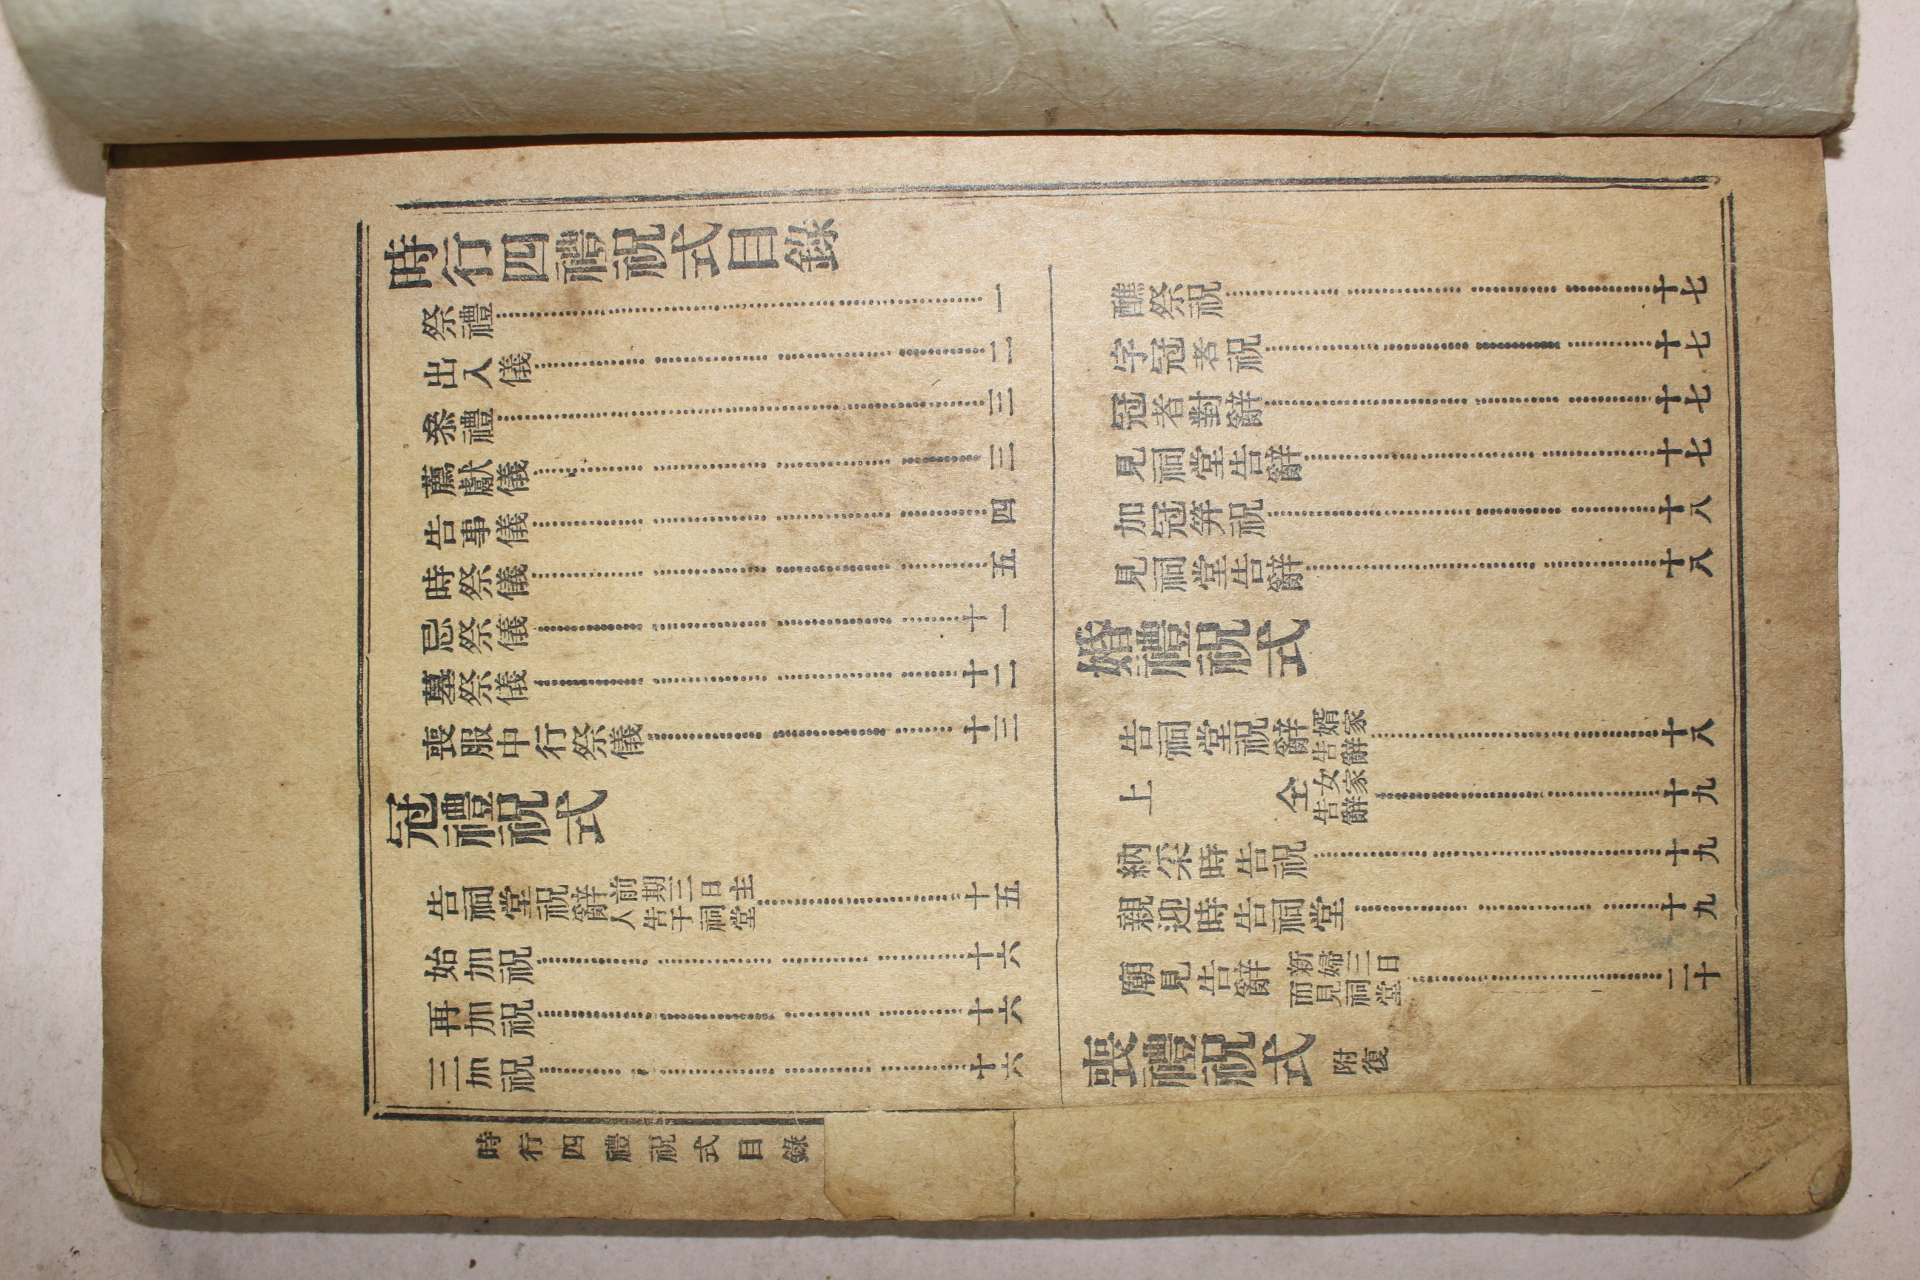 時行四禮祝式目錄
祭禮……一
出入儀……二
叅禮……三
薦獻儀……三
告事儀……四
時祭儀……五
忌祭儀……十一
墓祭儀……十二
喪服中行祭儀……十三
冠禮祝式
告祠堂祝辭 前期三日主人告于祠堂……十五
始加祝……十六
再加祝……十六
三加祝……十六
醮祭祝……十七
字冠者祝……十七
冠者對辭……十七
見祠堂告辭……十七
加冠笄祝……十八
見祠堂告辭……十八
婚禮祝式
告祠堂祝辭 婿家告辭……十八
上仝 女家告辭……十九
納采時告祝……十九
親迎時告祠堂……十九
廟見告辭 新婦三日而見祠堂……二十
喪禮祝式 附復
時行四禮祝式目錄